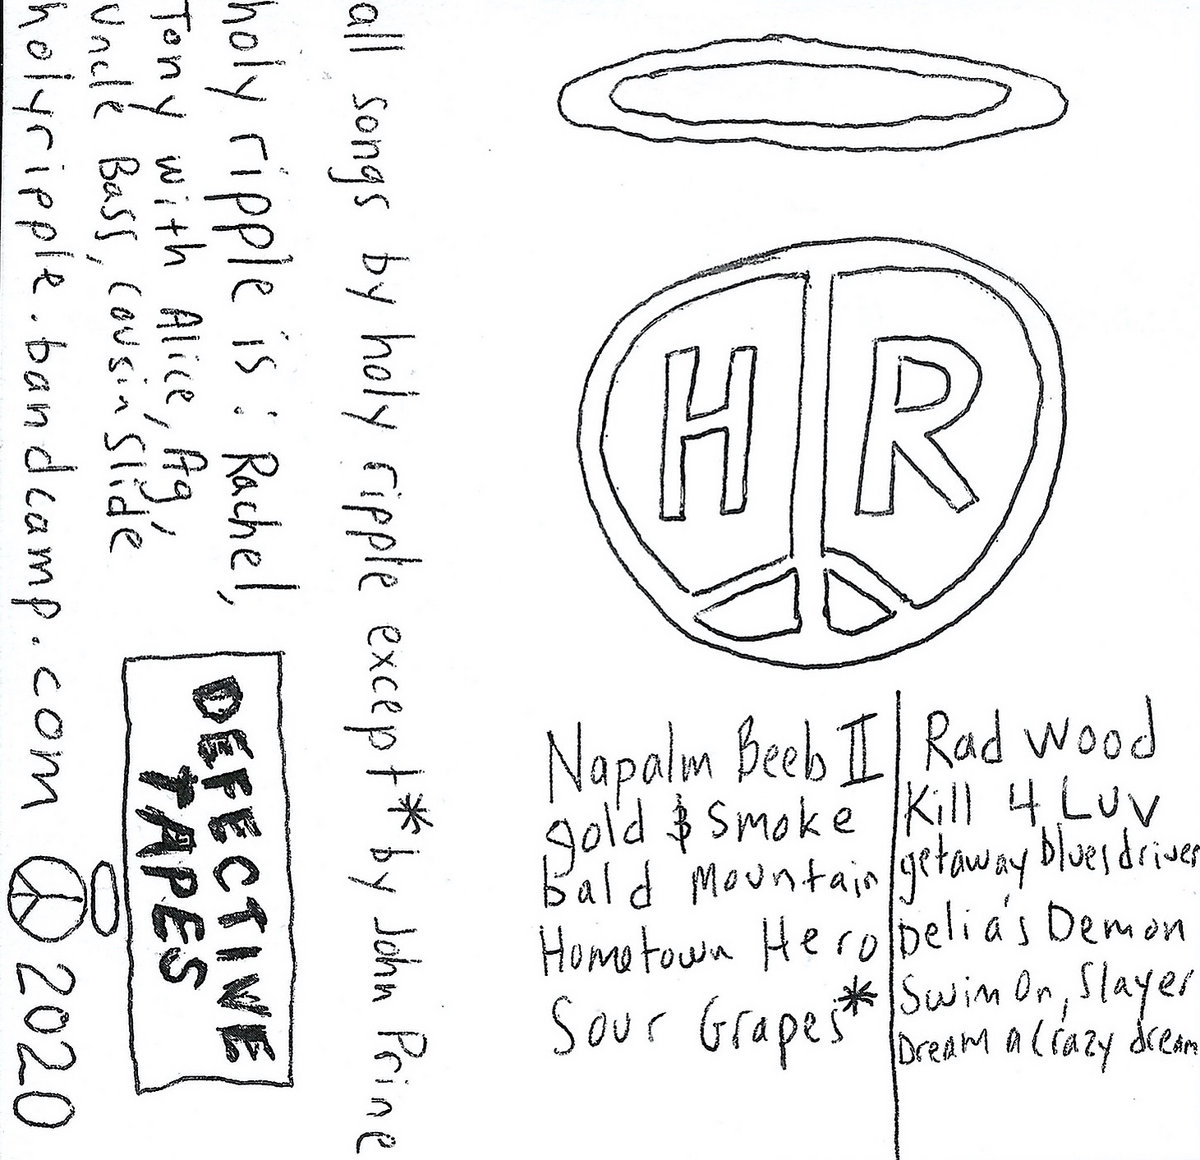 H R
Napalm Beeb II
gold & Smoke
bald Mountain
Hometown Hero
Sour Grapes*
Rad Wood
Kill 4 Luv
getaway blues driver
Delia's Demon
Swim On, Slayer
Dream a Crazy dream
all songs by holy ripple except* by John Prine
holy ripple is: Rachel,
Tony with Alice, Ag,
Uncle Bass, cousin Slide
holyripple.bandcamp.com ☮ 2020
DEFECTIVE
TAPES